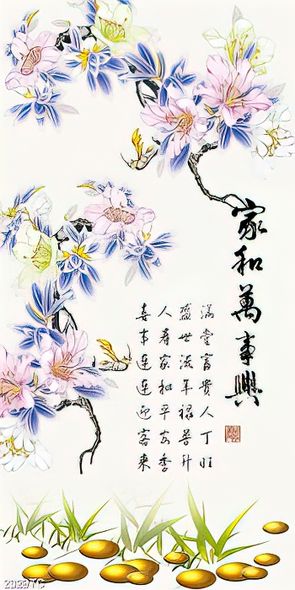 家和萬事興
滿堂富貴人丁旺
盛世流年祿普升
人壽家和平安季
喜事連連迎客來